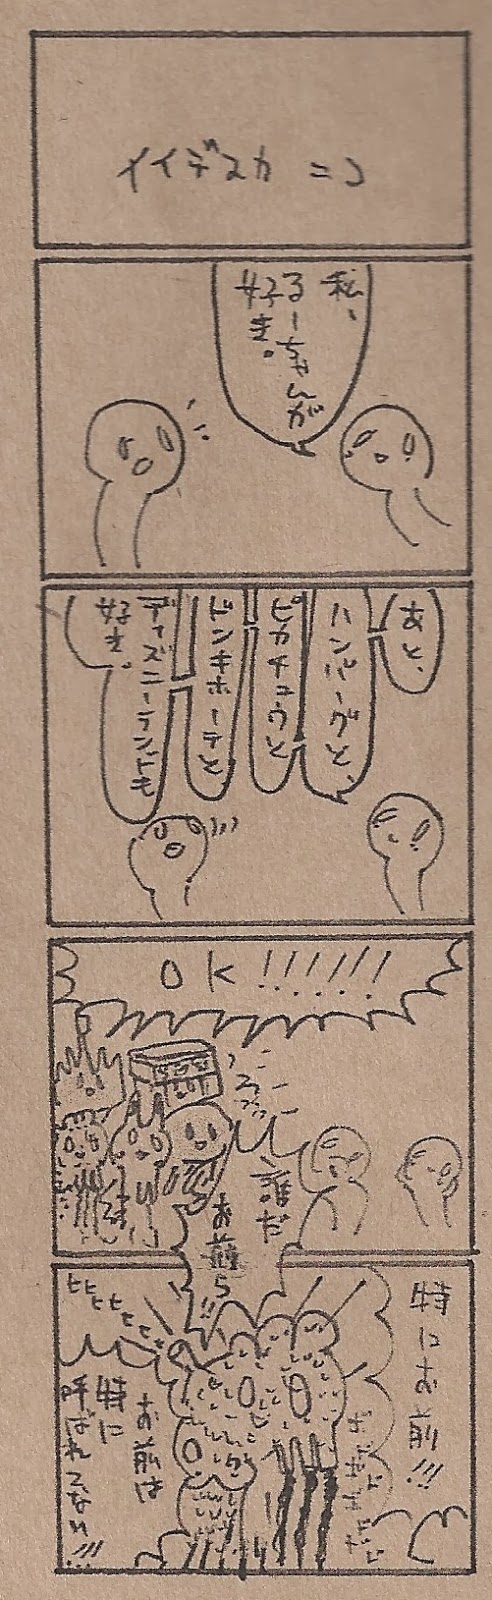 イイデスカ ニコ
私、
るーちゃんが
好き。
あと、
ハンバーグと、
ピカチュウと
ドンキホーテと、
ディズニーランドも
好き。
OK!!!!!!
誰だ
お前ら!!
特にお前!!!
ヒヒヒヒヒヒ
お前は
特に
呼ばれてない!!!